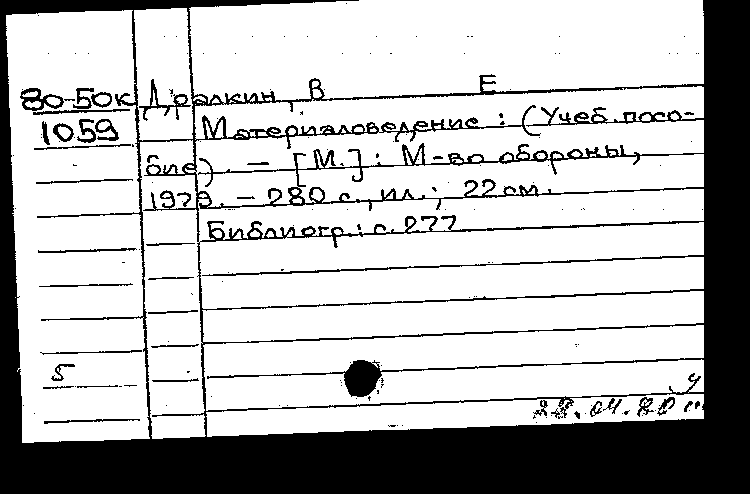 80-50к Дралкин, В Е
1059 Материаловедение : (Учеб. посо-
бие). - [М.] : М-во обороны,
1979. - 280 с., ил.; 22 см.
Библиогр.: с. 277
5
28.04.80